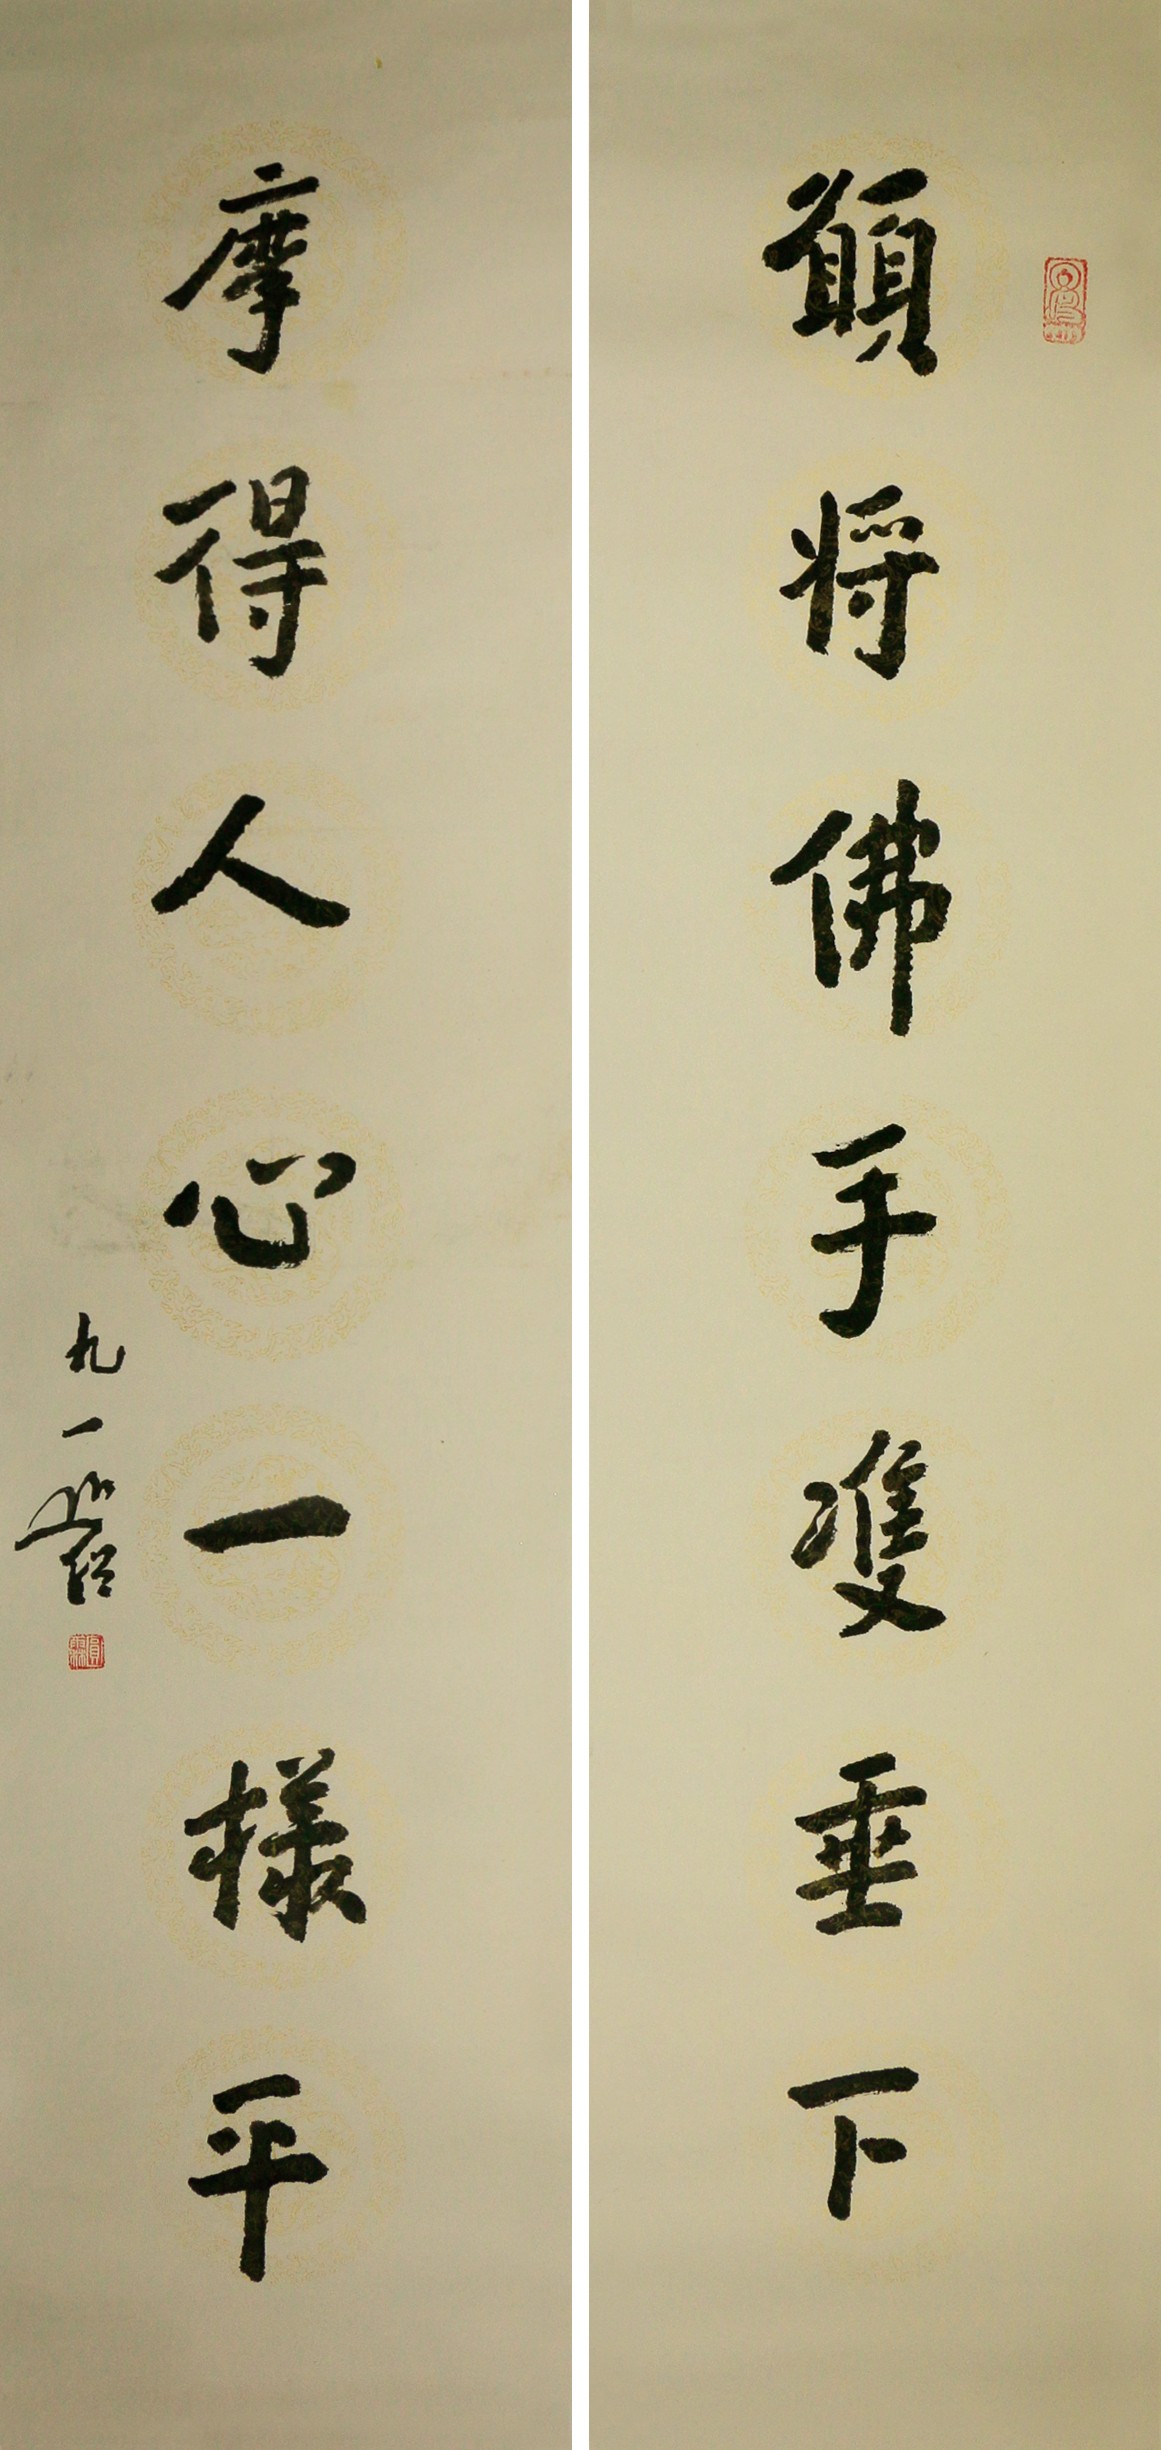 願将佛手雙垂下
摩得人心一樣平
九一